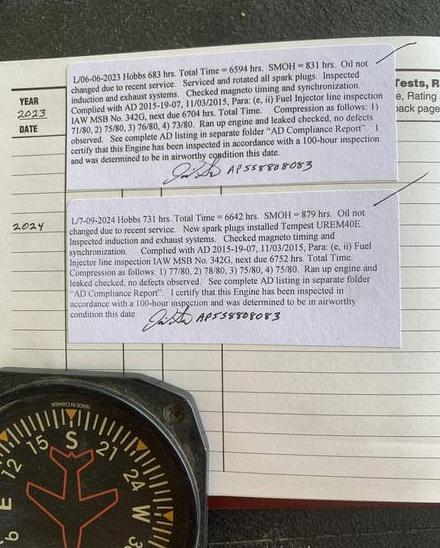 YEAR
2023
DATE
L/06-06-2023 Hobbs 683 hrs. Total Time = 6594 hrs. SMOH = 831 hrs. Oil not
changed due to recent service. Serviced and rotated all spark plugs. Inspected
induction and exhaust systems. Checked magneto timing and synchronization.
Complied with AD 2015-19-07, 11/03/2015, Para: (e, ii) Fuel Injector line inspection
IAW MSB No. 342G, next due 6704 hrs. Total Time. Compression as follows: 1)
71/80, 2) 75/80, 3) 76/80, 4) 73/80. Ran up engine and leaked checked, no defects
observed. See complete AD listing in separate folder "AD Compliance Report". I
certify that this Engine has been inspected in accordance with a 100-hour inspection
and was determined to be in airworthy condition this date.
AP558808083
Tests, R
e, Rating
back page
2024
L/7-09-2024 Hobbs 731 hrs. Total Time = 6642 hrs. SMOH = 879 hrs. Oil not
changed due to recent service. New spark plugs installed Tempest UREM40E.
Inspected induction and exhaust systems. Checked magneto timing and
synchronization. Complied with AD 2015-19-07, 11/03/2015, Para: (e, ii) Fuel
Injector line inspection IAW MSB No. 342G, next due 6752 hrs. Total Time.
Compression as follows: 1) 77/80, 2) 78/80, 3) 75/80, 4) 75/80. Ran up engine and
leaked checked, no defects observed. See complete AD listing in separate folder
"AD Compliance Report". I certify that this Engine has been inspected in
accordance with a 100-hour inspection and was determined to be in airworthy
condition this date.
AP558808083
MADE IN CANADA
6 E 12 15 S 21 24 W 30